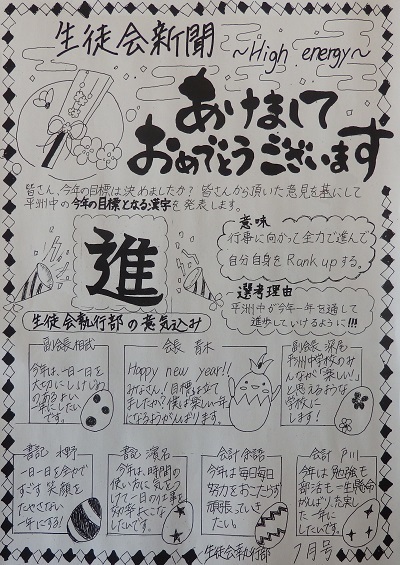 生徒会新聞
~High energy~
あけまして
おめでとうございます
皆さん、今年の目標は決めましたか？皆さんから頂いた意見を基にして
平洲中の今年の目標となる漢字を発表します。
進
意味
行事に向かって全力で進んで
自分自身をRank upする。
選考理由
平洲中が今年一年を通して
進歩していけるように!!!
生徒会執行部の意気込み
副会長
今年は、一日一日を
大切にし
年にしたい
です。
会長 青木
Happy new year!!
みなさん！目標は立て
ましたか？僕は楽しい一年
になるようがんばります。
副会長 深尾
平洲中学校のみ
んなが「楽しい！」
と思えるような
学校に
します！
書記 水野
一日一日を全力で
すごす 笑顔を
たやさない
一年にする！
書記 濱名
今年は、時間の
使い方に気をつ
けて一日の仕事を
効率よくこな
したいです。
会計 余語
今年は毎日毎日
努力をおこたらず
頑張っていき
たい。
会計 戸川
今年は勉強も
部活も一生懸命
がんばり、充実し
た一年に
したいです。
生徒会執行部 1月号